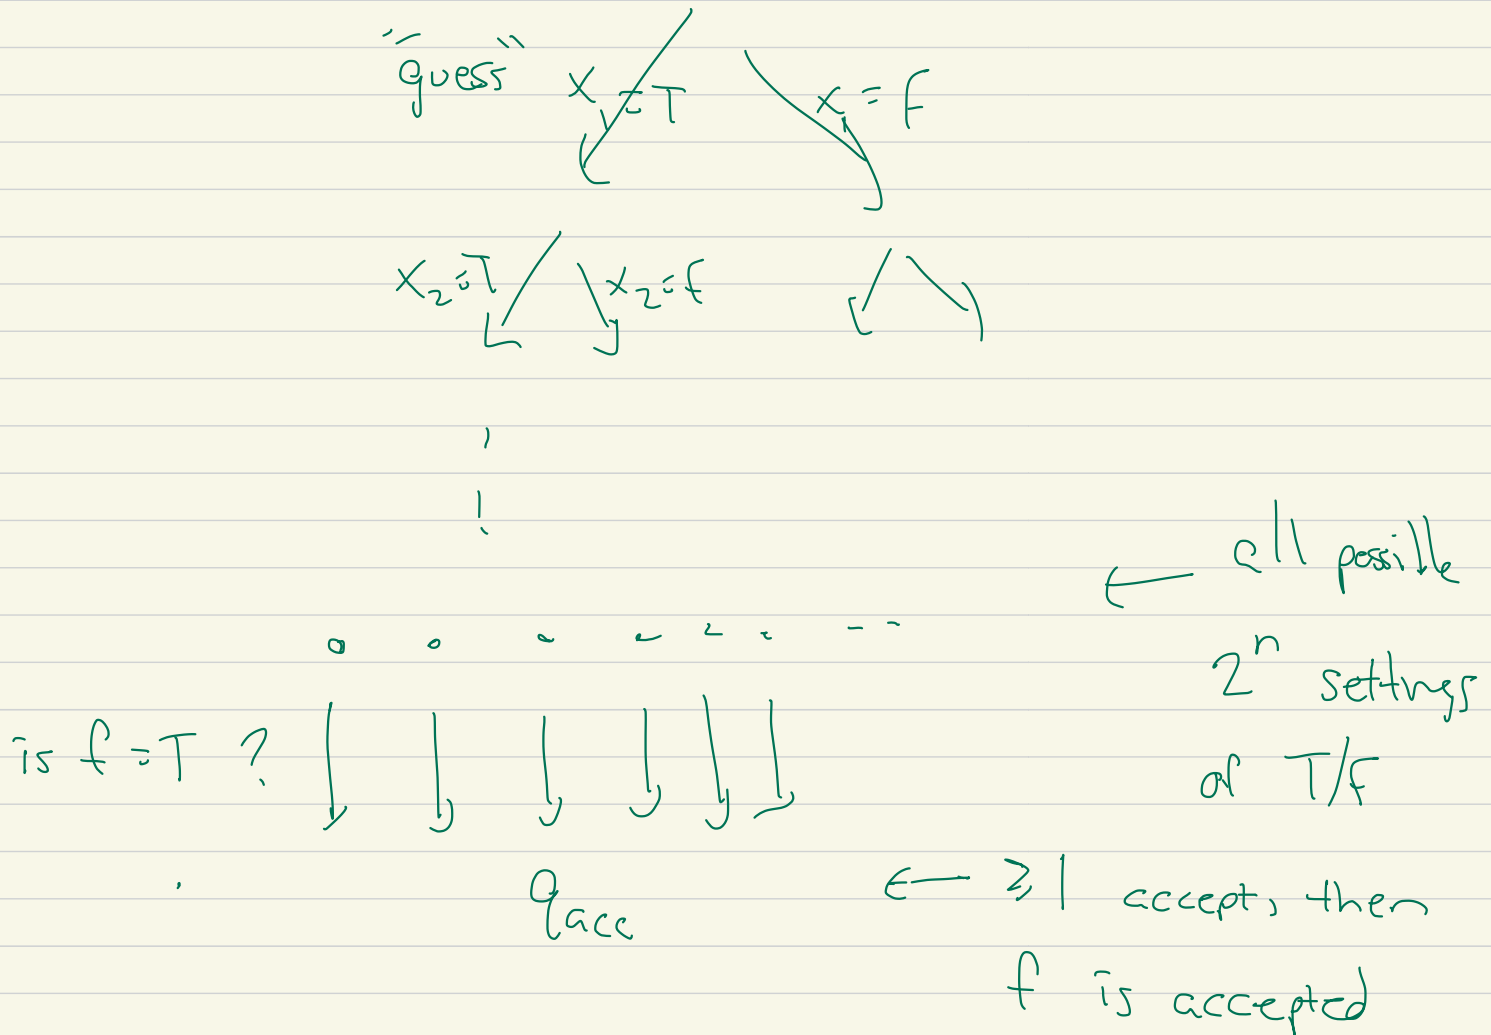 "guess" x₁=T x₁=F
x₂=T x₂=F
all possible
2ⁿ settings
is f=T ? of T/F
q_acc ← ≥1 accept, then
f is accepted